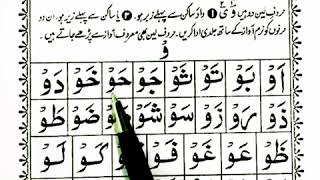 حروفِ لین دو ہیں وْ یْ ① واؤ ساکن سے پہلے زبر ہو۔ ② یا ساکن سے پہلے زیر ہو۔ ان دو
حرفوں کو نرم آواز کے ساتھ جلدی ادا کریں۔ حروف لین بھی معروف آواز سے پڑھے جاتے ہیں۔
وْ
اَوْ بَوْ تَوْ ثَوْ جَوْ حَوْ خَوْ دَوْ
ذَوْ رَوْ زَوْ سَوْ شَوْ صَوْ ضَوْ طَوْ
ظَوْ عَوْ غَوْ فَوْ قَوْ كَوْ لَوْ